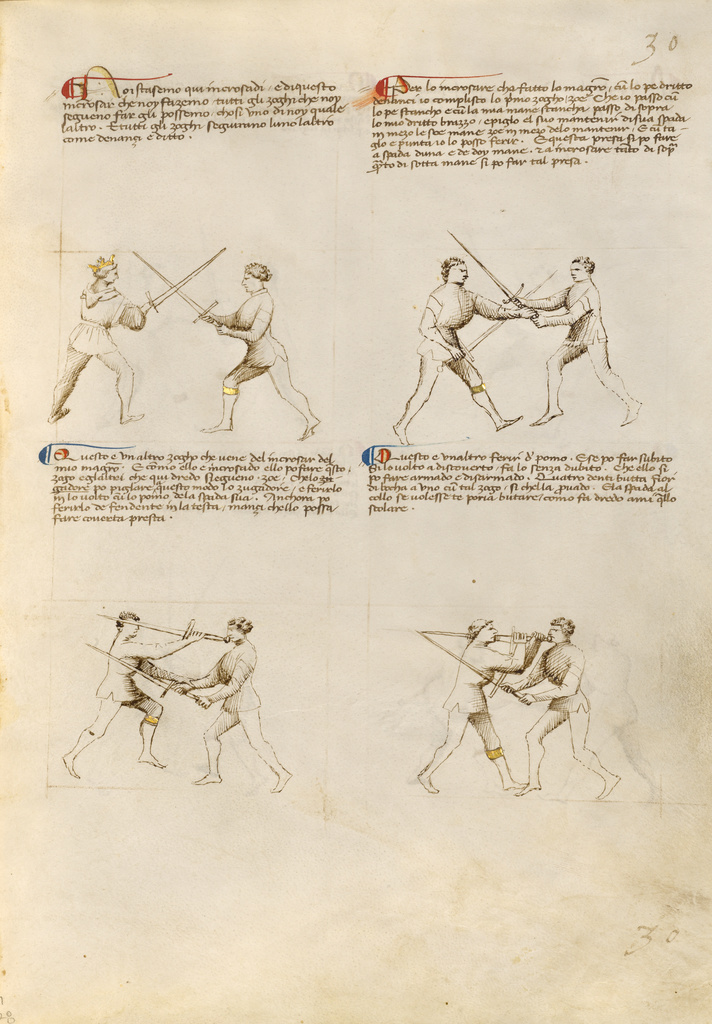 30
Noi stasemo qui incrosadi / e di questo
incrosar che noy fazemo tutti gli zoghi che noy
segueno far gli possemo, chosi uno di noy quale
laltro. E tutti gli zoghi seguirano luno laltro
come denançi è ditto.
Per lo incrosare che fatto lo magro, cũ lo pe dritto
denanci io complisco lo pmo zogho zoe Che io passo cũ
lo pe stancho e cũ la mia mane stancha passo di sopra
lo mio dritto brazzo, e piglo el suo mantenir di sua spada
in mezo le soe mane zoe in mezo delo mantenir, E cũ ta-
glo e punta io lo posso ferir. E questa presa si po fare
a spada duna e de doy mane. z a incrosare tãto di sop
q̃to di sotta mane si po far tal presa.
Questo e un altro zogho che vene del incrosar del
mio magro. E como ello e incrosado ello po fare q̃sto
zogo e gl altri che qui dredo sieguено, zoe, Chelo zu-
gadore po piglare questo modo lo zugadore, e ferirlo
in lo volto cũ lo pomo dela spada sua. Anchora po
ferirlo de fendente in la testa, mançi chello possa
fare coverta presta.
Questo e unaltro ferir d' pomo. E se po far subito
Si lo volto a discoverto, fa lo senza dubito. Che ello si
po fare armado e disarmado. Quatro denti butta fuor
di bocha a uno cũ tal zogo, si chella provado. E la spada al
collo se volesse te poria butare, como fa dredo a mi q̃llo
scolare.
30